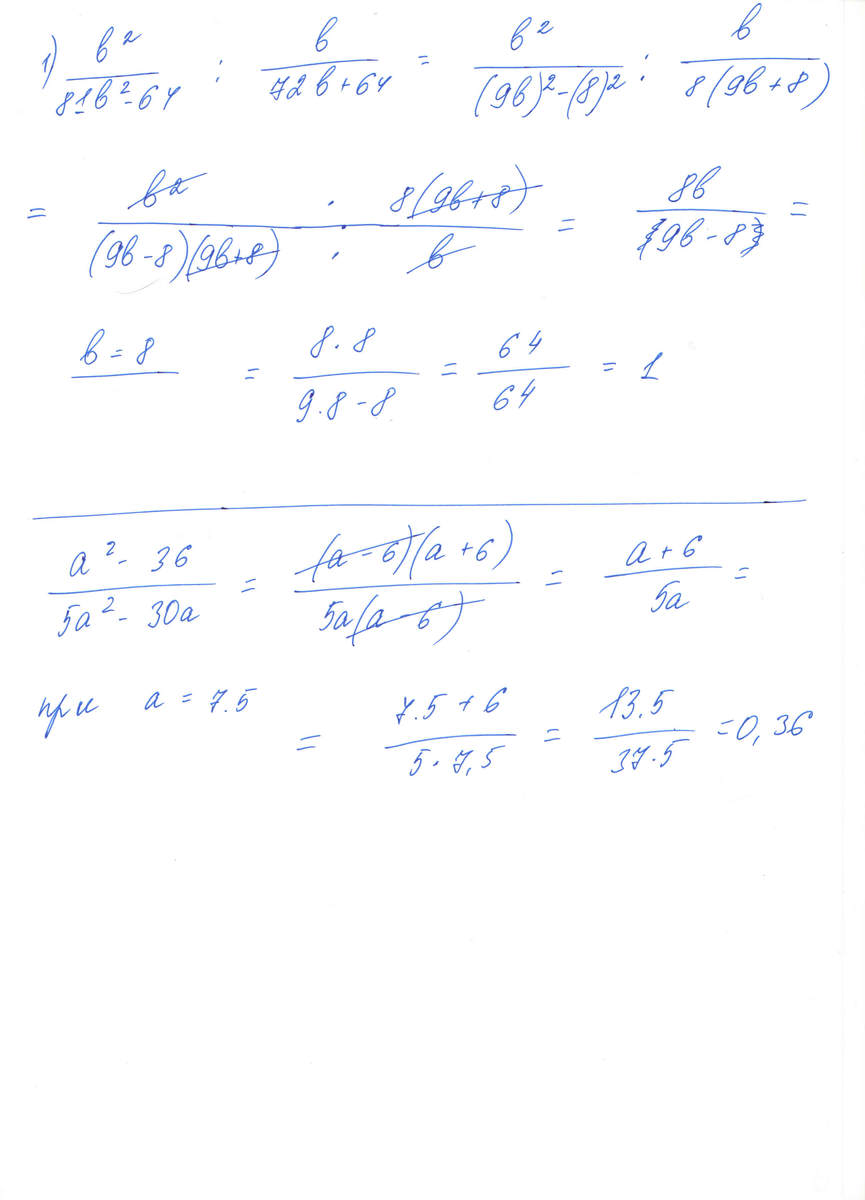 1) b²/(81b²-64) : b/(72b+64) = b²/((9b)²-(8)²) : b/(8(9b+8))
= (b² · 8(9b+8))/((9b-8)(9b+8) · b) = 8b/(9b-8) =
b = 8 = (8·8)/(9·8-8) = 64/64 = 1
(a²-36)/(5a²-30a) = ((a-6)(a+6))/(5a(a-6)) = (a+6)/(5a) =
при a = 7.5 = (7.5+6)/(5·7,5) = 13.5/37.5 = 0,36